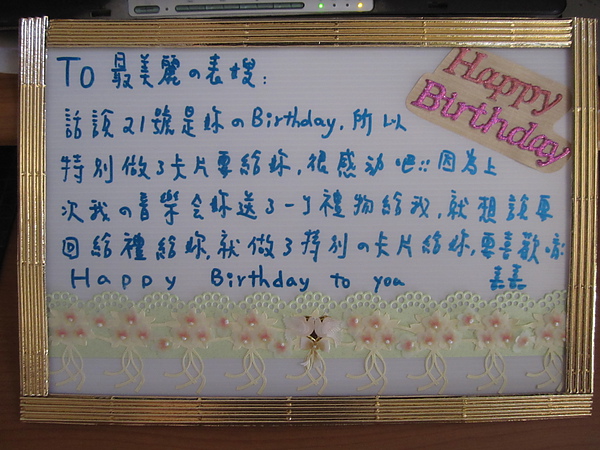 To 最美麗の表嫂:
Happy
Birthday
話說21號是妳のBirthday,所以
特別做了卡片要給妳,很感动吧!!因為上
次我の音樂会妳送了一个禮物給我,就想說要
回給禮給妳,就做了特別の卡片給妳,要喜歡喔
Happy Birthday to you 嘉嘉